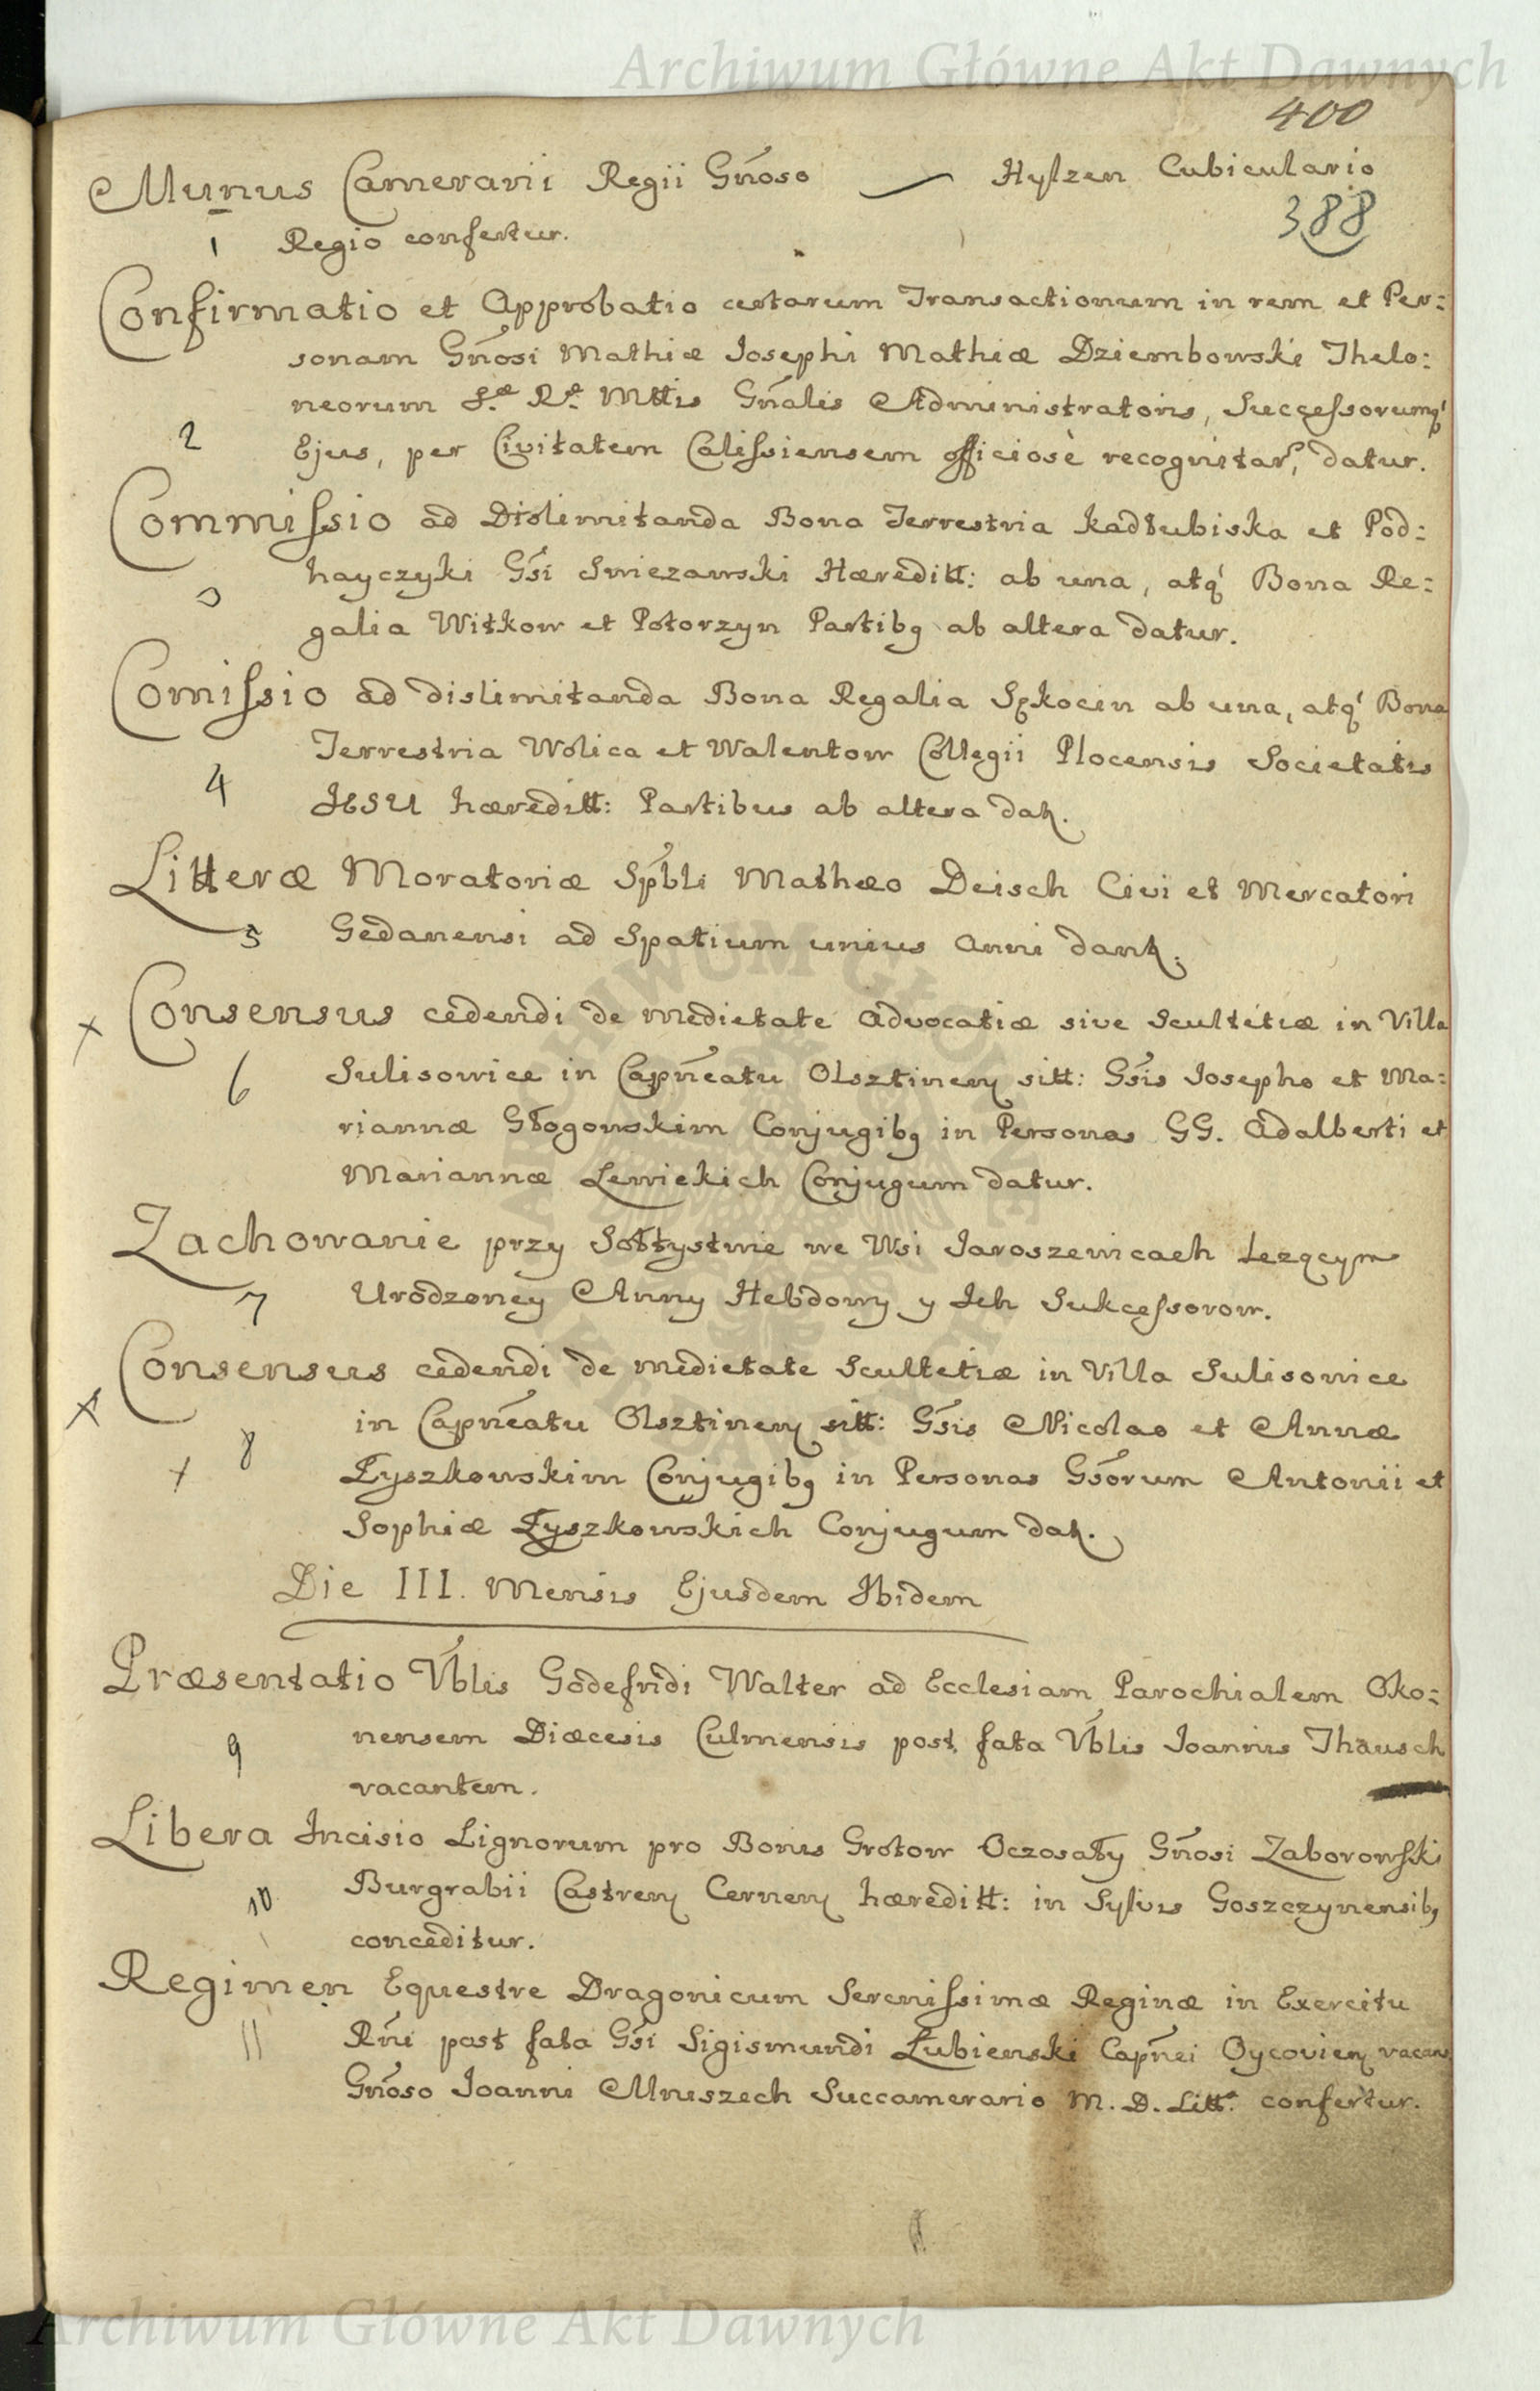 Archiwum Główne Akt Dawnych
400
Munus Camerarii Regii Gn̄oso — Hylzen Cubiculario
388
1 Regio confertur.
Confirmatio et Approbatio certarum Transactionum in rem et Per:
sonam Gn̄osi Mathiæ Josephi Mathiæ Dziembowski Thelo:
neorum S.æ R.æ Mttis Gn̄alis Administratoris, Succeſsorumq́
2 Ejus, per Civitatem Caliſsiensem officiosè recognitar, datur.
Commiſsio ad Dislimitanda Bona Terrestria Kadłubiska et Pod:
hayczyki Gsi Swiezawski Hæreditt: ab una, atq́ Bona Re:
3
galia Witkow et Potorzyn Partibq ab altera datur.
Comiſsio ad dislimitanda Bona Regalia Sękocin ab una, atq́ Bona
Terrestria Wolica et Walentow Collegii Plocensis Societatis
4 JESU hæreditt: Partibus ab altera dat.
Litteræ Moratoriæ Spbli Mathæo Deisch Civi et Mercatori
5 Gedanensi ad Spatium unius Anni dant.
x Consensus cedendi de medietate Advocatiæ sive Scultetiæ in Villa
6 Sulisowice in Capn̄eatu Olsztinen sitt: Gsis Josepho et Ma:
riannæ Głogowskim Conjugibq in Personas GG. Adalberti et
Mariannæ Lewickich Conjugum datur.
Zachowanie przy Sołtystwie we Wsi Jaroszewicach Lezącym
7 Urodzoney Anny Hebdowy y Jch Sukceſsorow.
x Consensus cedendi de medietate Scultetiæ in Villa Sulisowice
in Capn̄eatu Olsztinen sitt: Gsis Nicolao et Annæ
x 8 Łyszkowskim Conjugibq in Personas Gsorum Antonii et
Sophiæ Łyszkowskich Conjugum dat.
Die III. Mensis Ejusdem Ibidem
Præsentatio Vblis Godefridi Walter ad Ecclesiam Parochialem Oko:
9 nensem Diæcesis Culmensis post fata Vblis Joannis Thausch
vacantem.
Libera Incisio Lignorum pro Bonis Grotow Oczosały Gn̄osi Zaborowſki
10 Burgrabii Castren Cernen hæreditt: in Sylvis Goszczynensibq
conceditur.
Regimen Equestre Dragonicum Sereniſsimæ Reginæ in Exercitu
11 Rn̄i post fata Gsi Sigismundi Łubienski Capn̄ei Oycovien vacans
Gn̄oso Joanni Mniszech Succamerario M. D. Litt. confertur.
Archiwum Główne Akt Dawnych